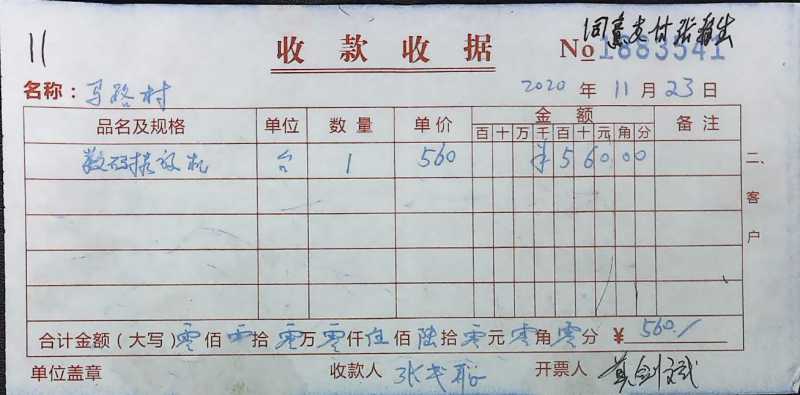 11 收款收据 同意支付
No 1883541
名称：马路村 2020年11月23日
品名及规格 单位 数量 单价 金额 备注
百十万千百十元角分
数码接收机 台 1 560 ¥56000
二、客户
合计金额（大写）零佰零拾零万零仟伍佰陆拾零元零角零分 ¥560./
单位盖章 收款人 张 开票人